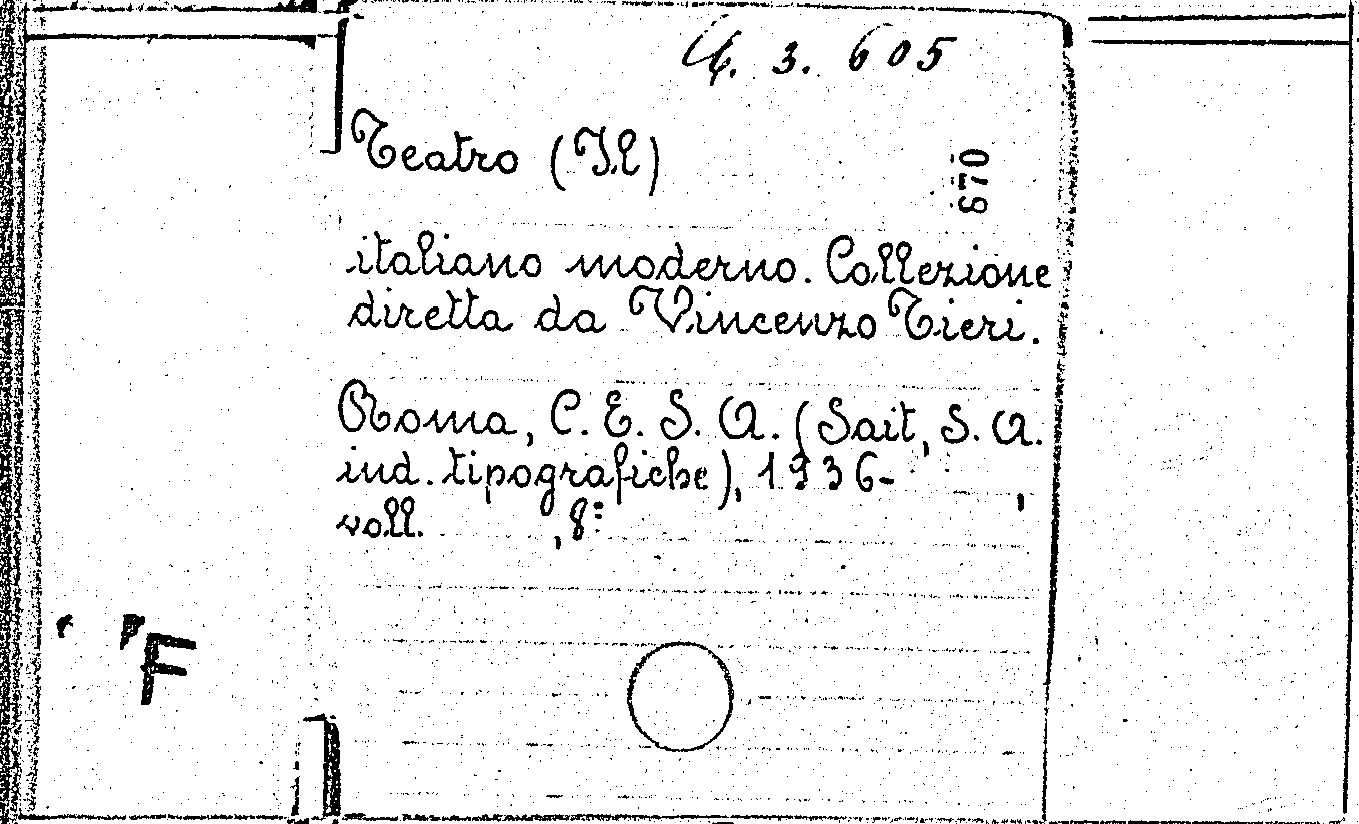 4. 3. 605
Teatro (Il)
670
italiano moderno. Collezione
diretta da Vincenzo Tieri.
Roma, C. E. S. A. (Sait, S. A.
ind. tipografiche), 1936- ,
voll. , 8°
F